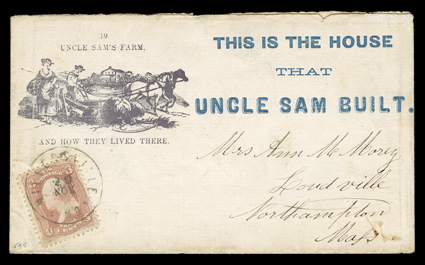 10
UNCLE SAM'S FARM,
AND HOW THEY LIVED THERE.
THIS IS THE HOUSE
THAT
UNCLE SAM BUILT.
Mrs Ann M Morey
Loudville
Northampton
Mass